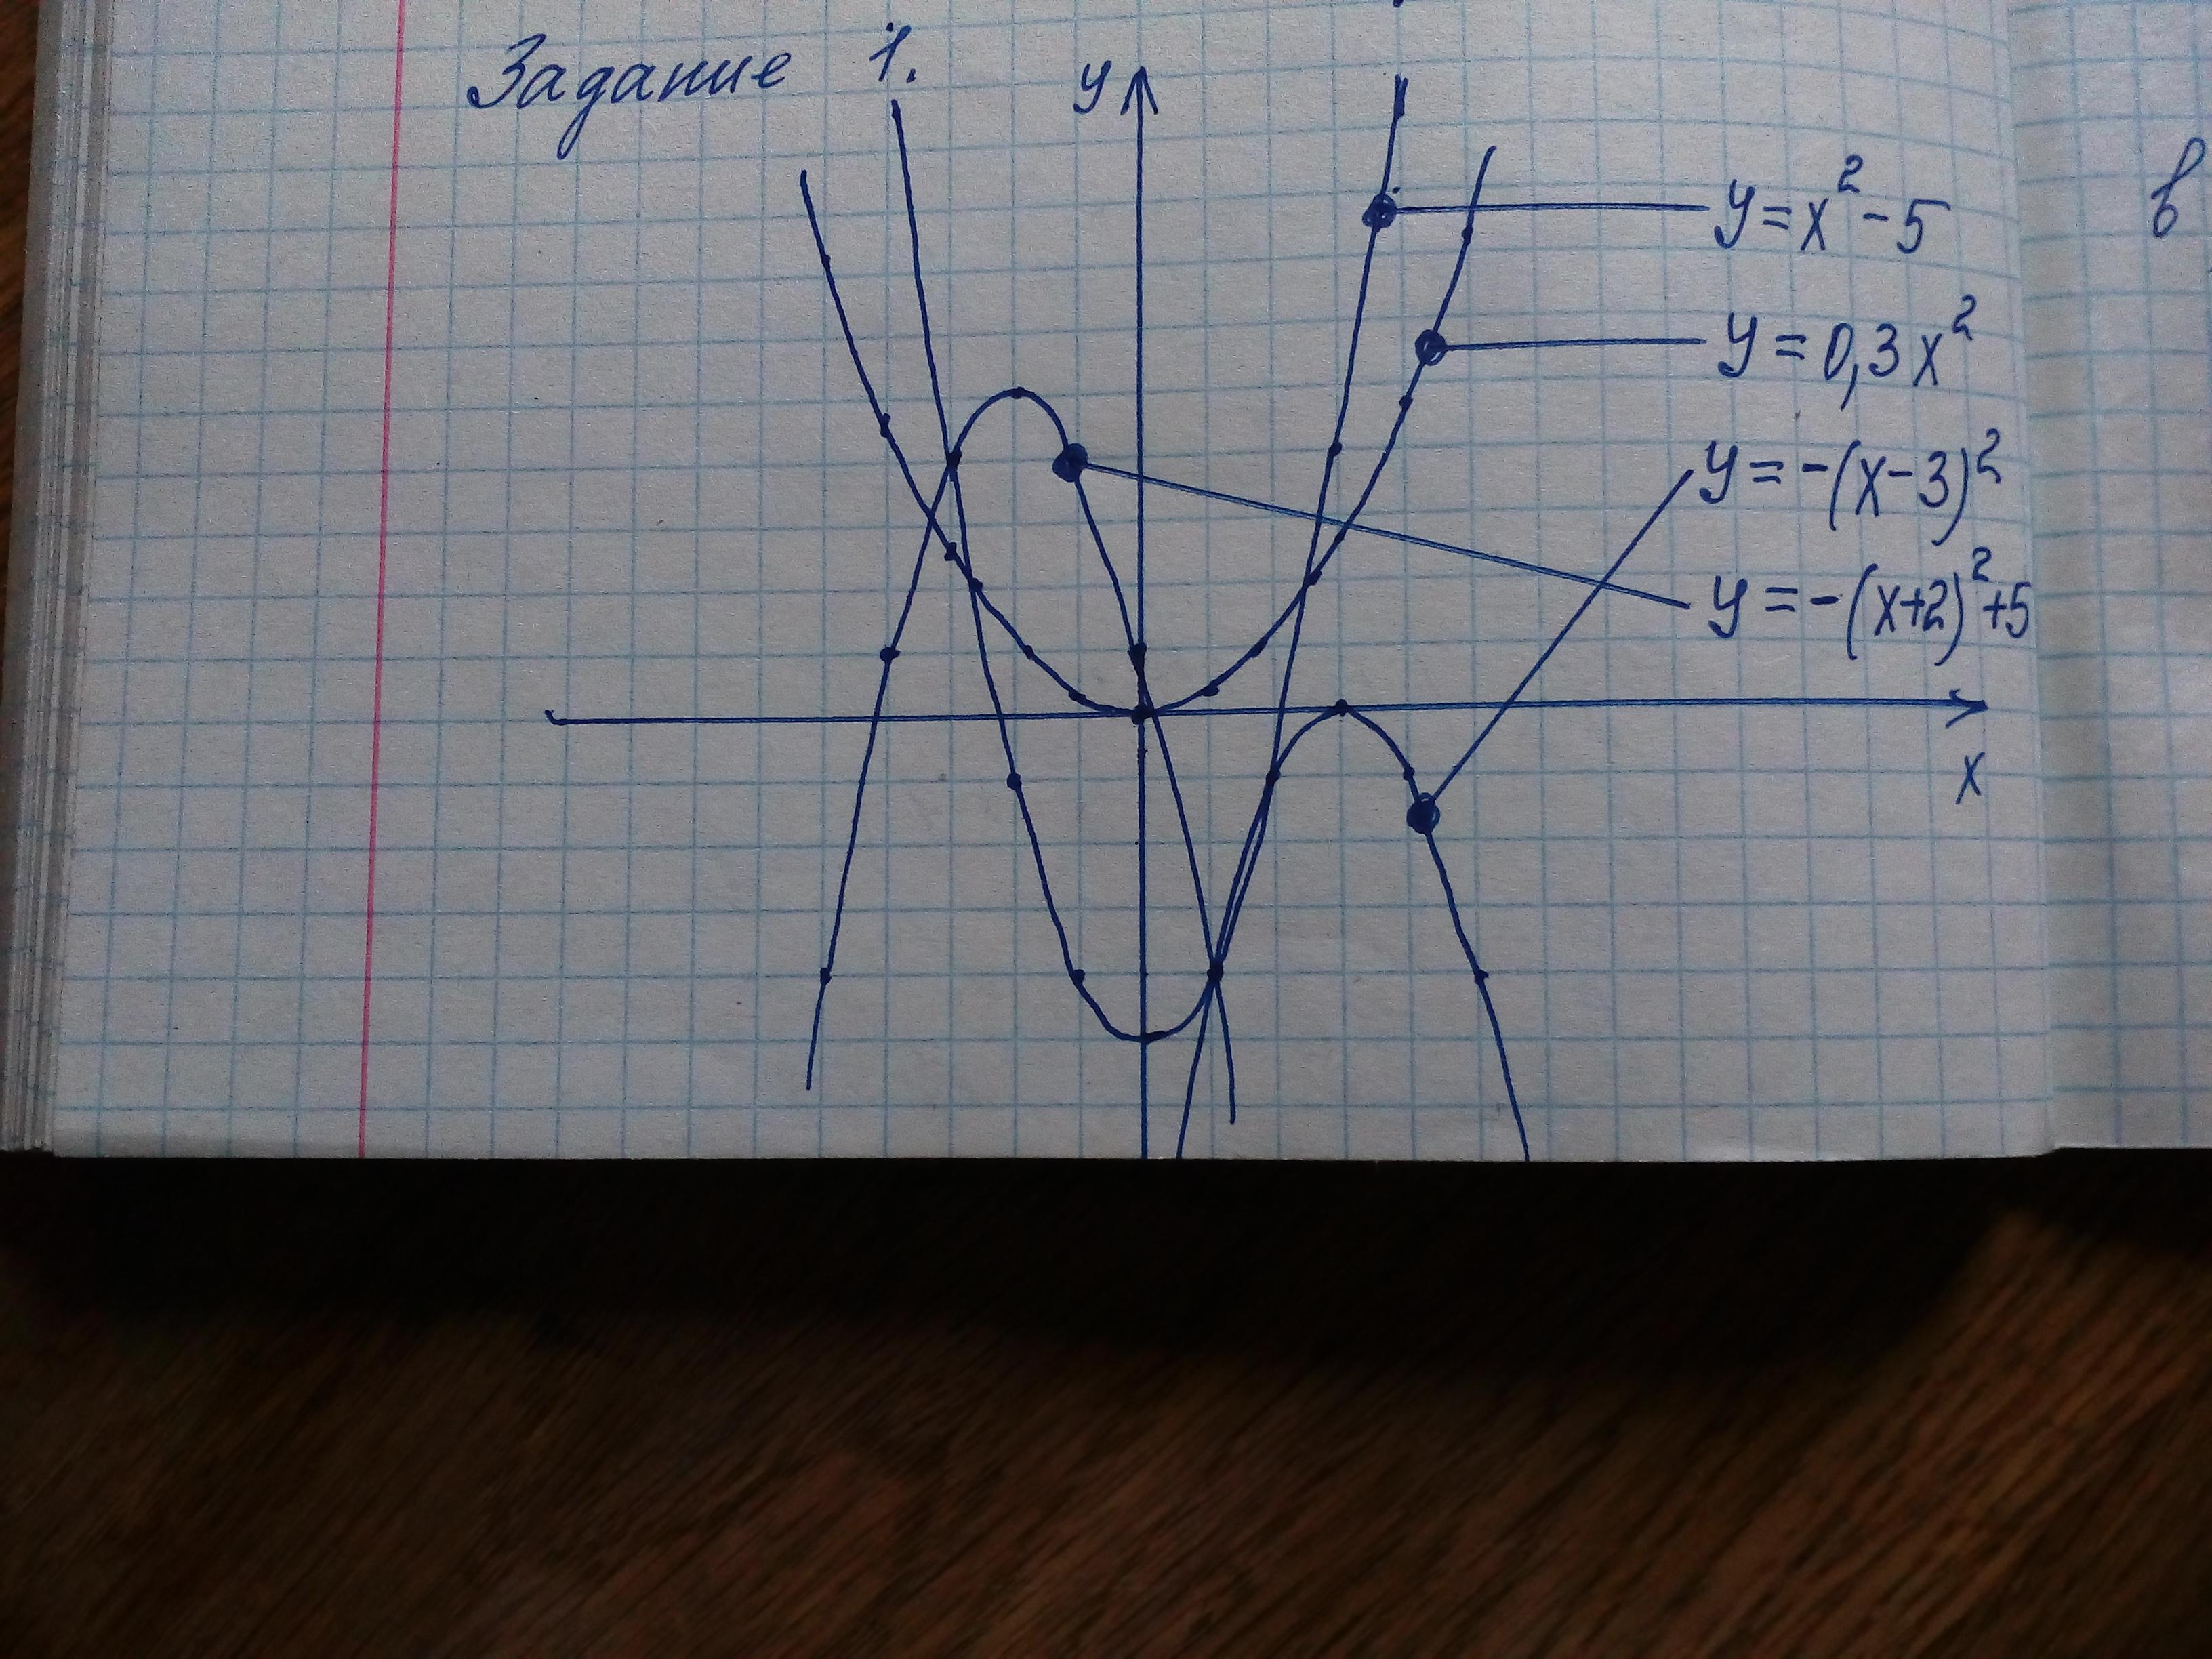 Задание 1.
y
y=x²-5
y=0,3x²
y=-(x-3)²
y=-(x+2)²+5
x
в